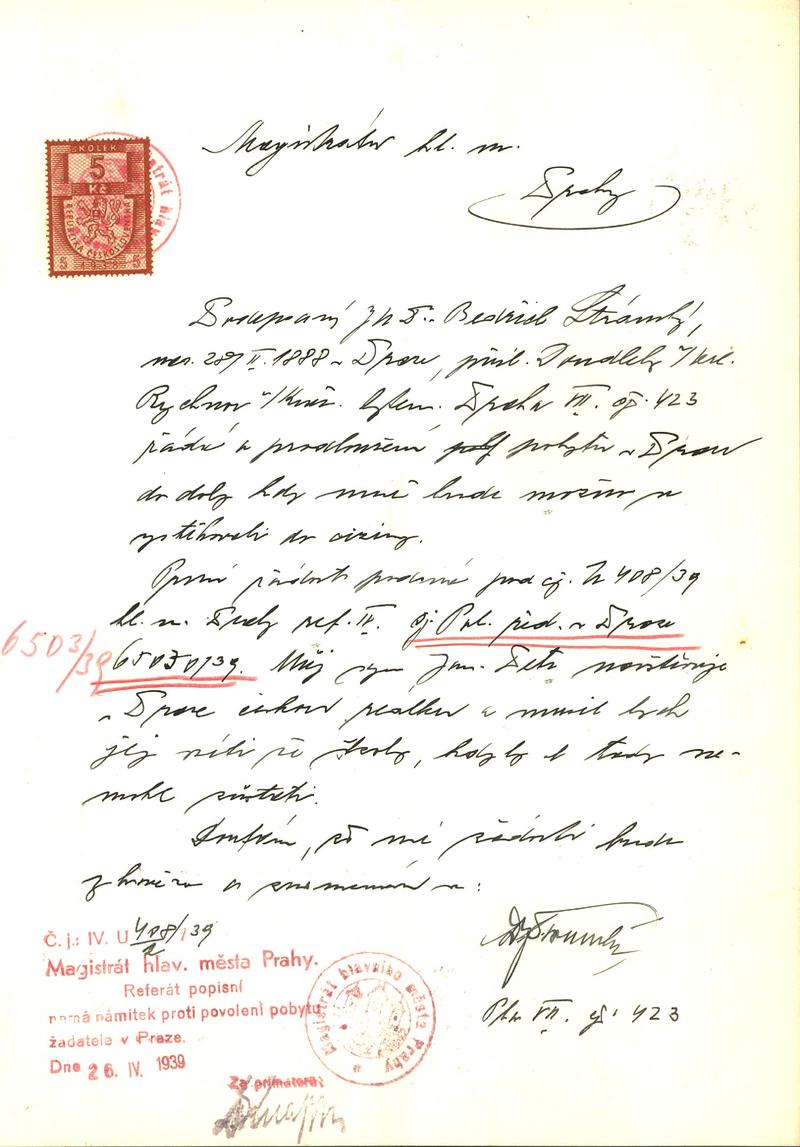 KOLEK
5
Kč
REPUBLIKA ČESKOSLOVENSKÁ
5 1938 5
Magistrátu hl. m.
Prahy
Podepsaný Bedřich Stránský,
nar. 28/II. 1888 v Praze, přísl. Doudleby
Rychnov bytem Praha VII. čp. 423
žádá o prodloužení pobytu v Praze
do doby kdy mně bude možno
vystěhovati do ciziny.
První žádost podána pod čj. 408/39
hl. m. Prahy ref. IV. čj. Pol. řed. v Praze
6503/39
6503/39. Můj syn Jan Petr navštěvuje
v Praze českou realku a musil bych
jej vzíti ze školy, kdyby tady ne-
mohl zůstati.
Doufám, že mé žádosti bude
vyhověno a znamenám se:
Č. j.: IV. U 408/39
Magistrát hlav. města Prahy.
Referát popisní
nemá námitek proti povolení pobytu
žadatele v Praze.
Dne 26. IV. 1939
Za primátora:
Magistrát hlavního města Prahy
Stránský
Praha VII. čp. 423